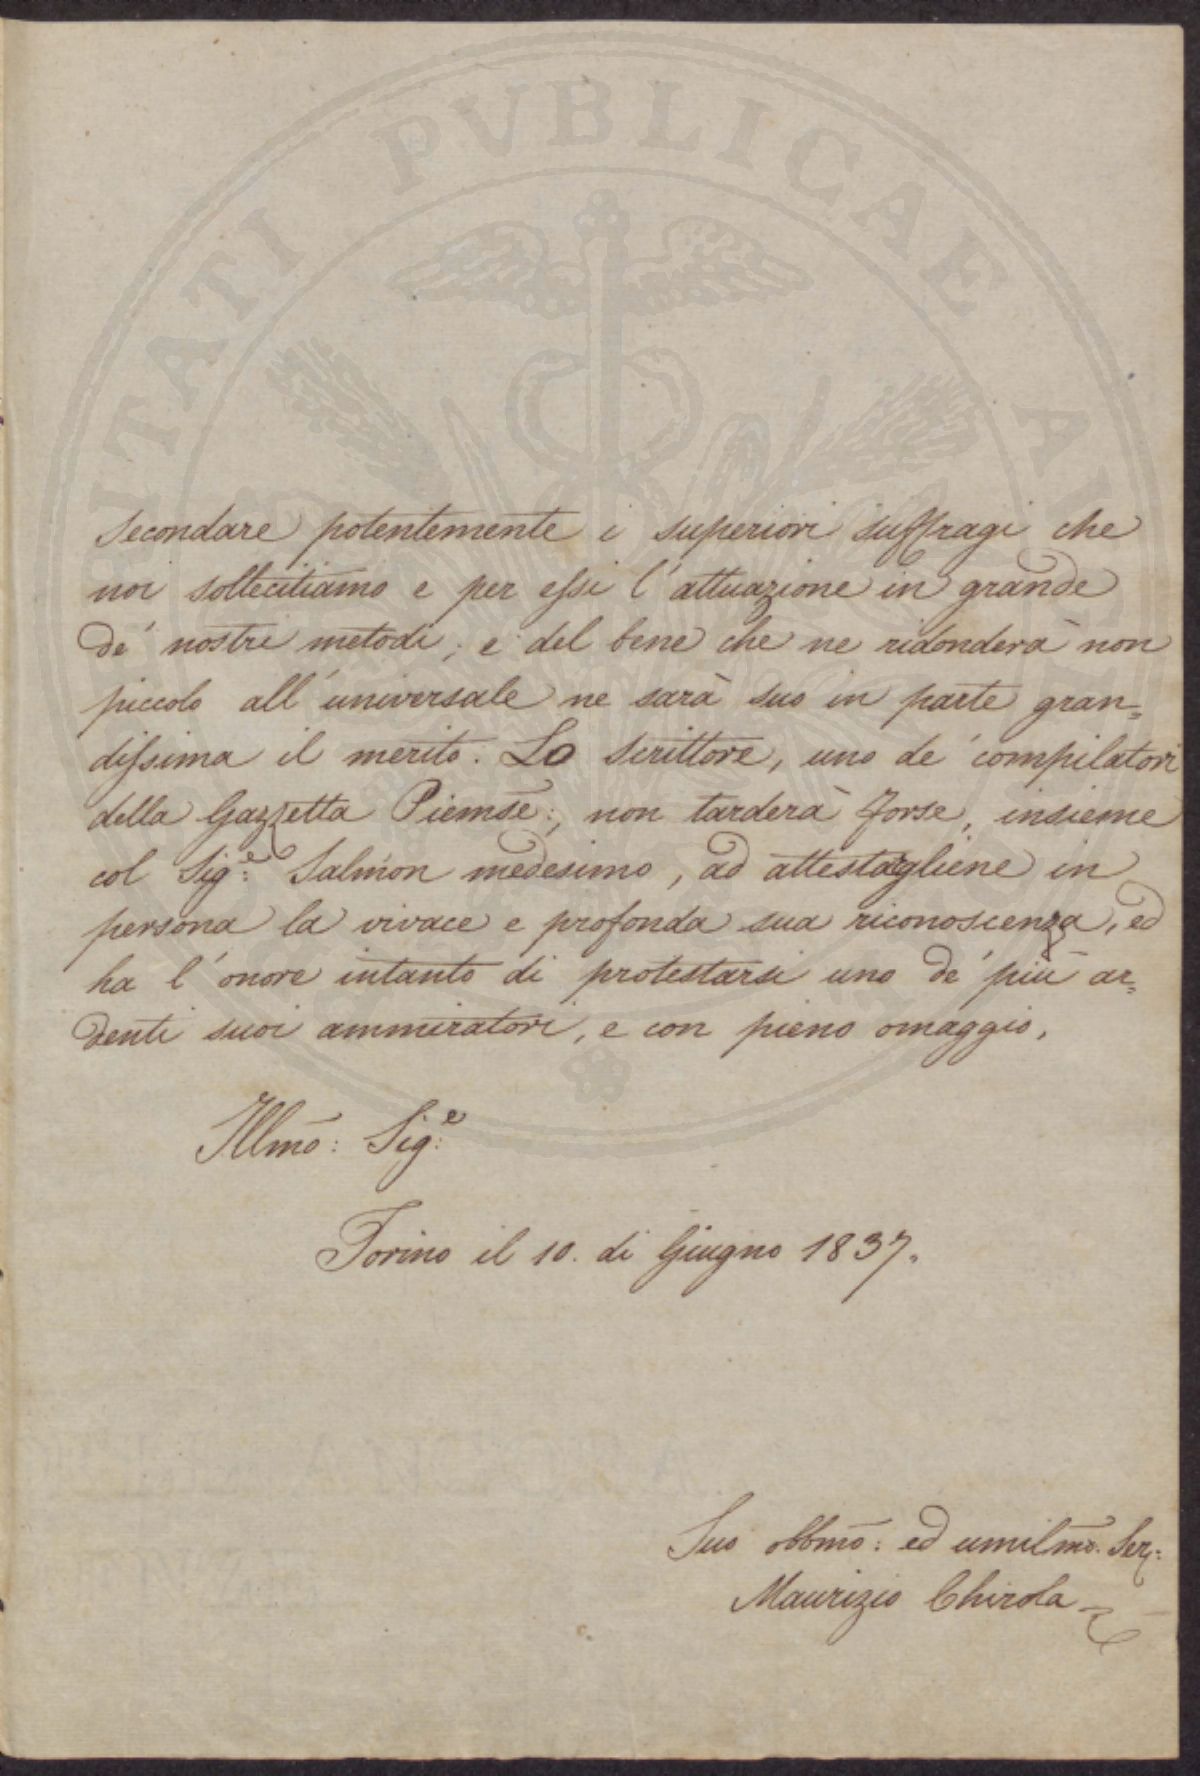 secondare potentemente i superiori suffragi che
noi sollecitiamo e per essi l'attuazione in grande
de' nostri metodi; e del bene che ne ridonderà non
piccolo all'universale ne sarà suo in parte gran=
dissima il merito. Lo scrittore, uno de' compilatori
della Gazzetta Piemse:, non tarderà forse, insieme
col Sig.e Salmon medesimo, ad attestargliene in
persona la vivace e profonda sua riconoscenza, ed
ha l'onore intanto di protestarsi uno de' più ar=
denti suoi ammiratori, e con pieno omaggio,
Illmo: Sig.e
Torino il 10. di Giugno 1837.
Suo obbmo: ed umilmo. Ser:
Maurizio Chirola
PVBLICAE